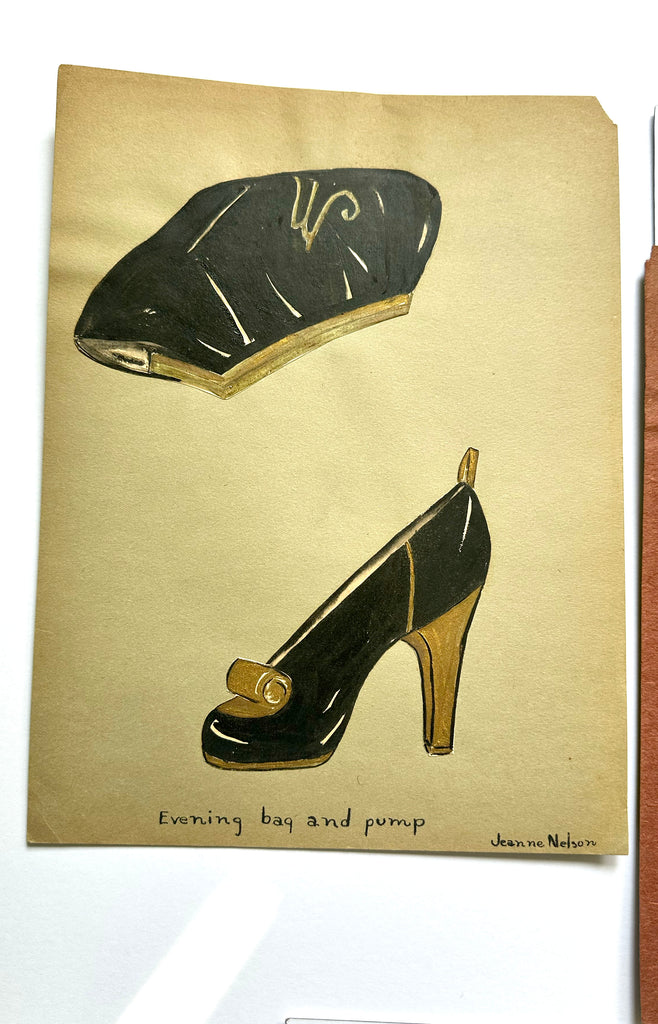 Evening bag and pump
Jeanne Nelson